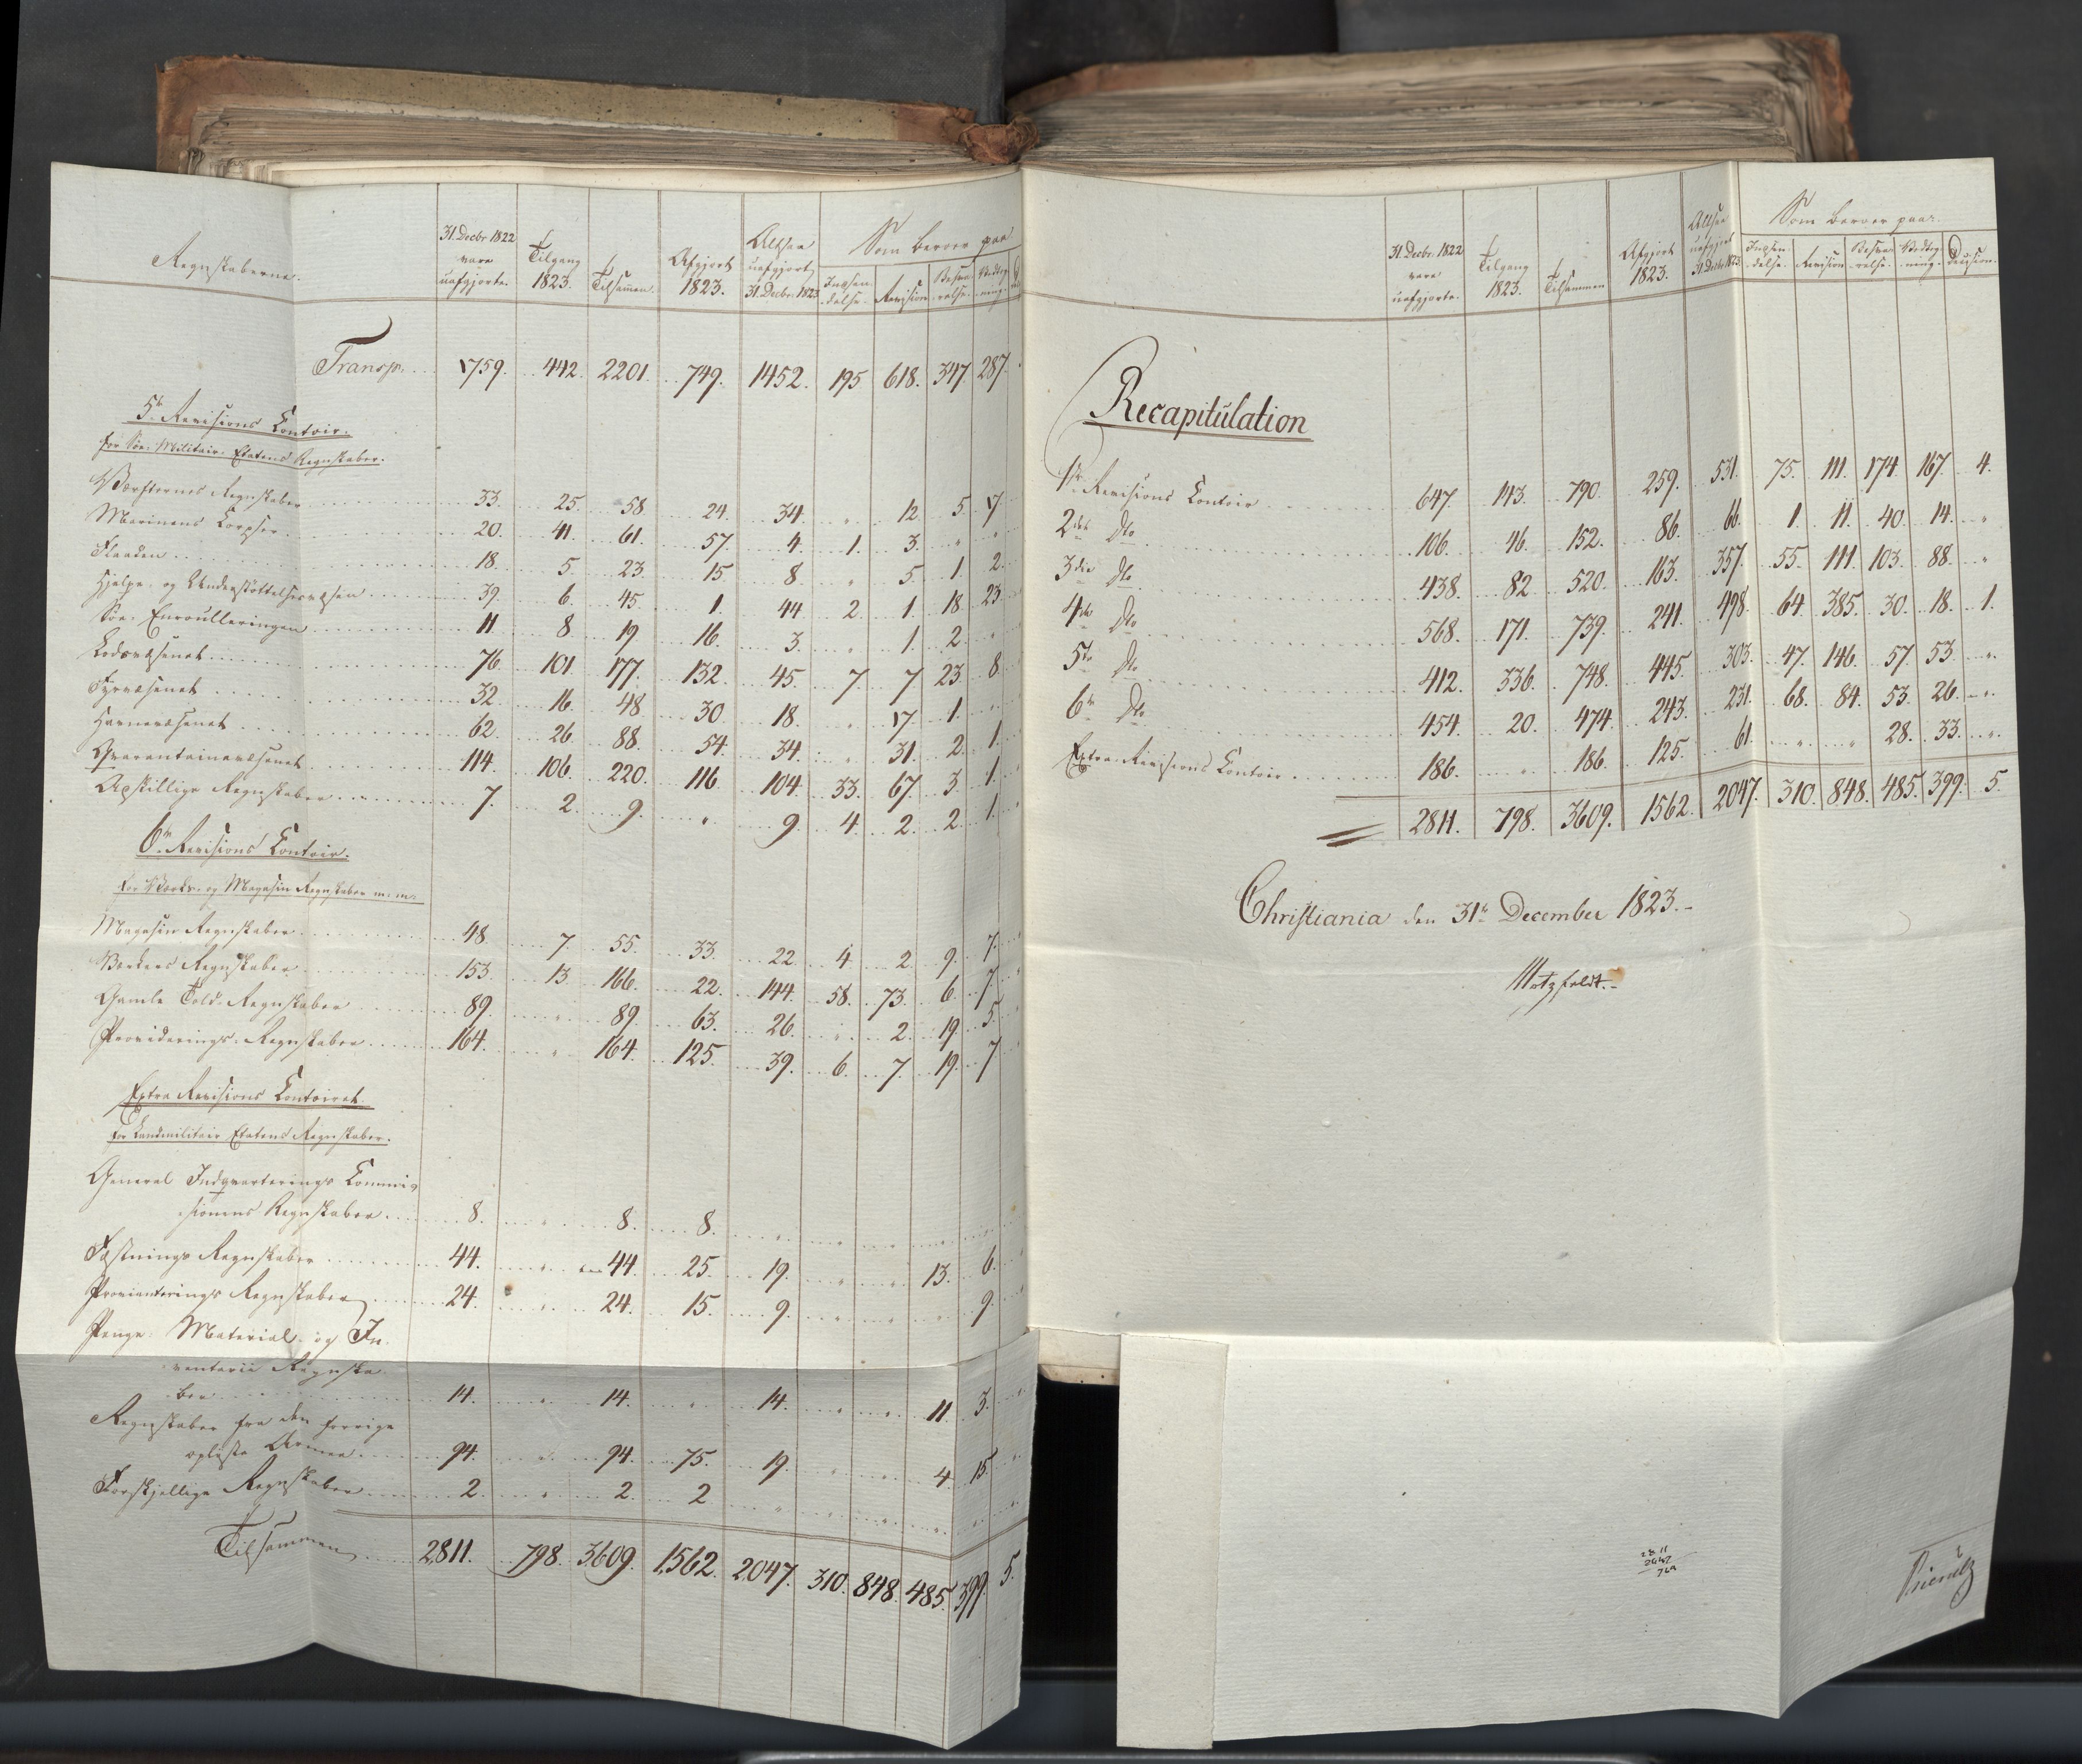 Regnskaberne.
31. Decbr 1822 vare uafgjorte. Tilgang 1823. Tilsamen. Afgjort 1823. Altsaa uafgjort 31. Decbr. 1823 Som beroer paa
Indsen-delse. Revision Besva-relse. Decision
Transp. 1759. 442. 2201. 749. 1452. 195 618. 347. 287.
5te Revisions Contoir.
for Søe-Militair-Etatens Regnskaber.
Værfternes Regnskaber 33. 25. 58 24. 34. " 12. 5. 17
Marinens Corpser 20. 41. 61. 57. 4. 1. 3. " "
Flaaden 18. 5. 23. 15. 8. " 5. 1. 2.
Hjelpe- og Understøttelsesvæsen 39 6. 45. 1. 44 2. 1. 18. 23
Søe-Enroulleringen 11 8. 19 16. 3. " 1. 2. "
Lodsvæsenet 76. 101 177. 132. 45. 7. 7 23 8
Fyrvæsenet 32 16. 48 30 18. " 17. 1. "
Havnevæsenet 62. 26. 88. 54. 34. " 31. 2. 1.
Qvarantainevæsenet 114. 106. 220. 116 104. 33. 67. 3. 1.
Adskillige Regnskaber 7. 2. 9. " 9 4. 2. 2. 1.
6te Revisions Contoir.
for Værks- og Magasin Regnskaber m: m:
Magasin Regnskaber 48. 7. 55. 33. 22. 4. 2. 9. 7.
Værkers Regnskaber 153. 13 166. 22. 144. 58. 73. 6. 7.
Gamle Told-Regnskaber 89. " 89. 63. 26. " 2. 19. 5.
Provideerings-Regnskaber 164. " 164. 125. 39. 6. 7. 19. 7
Extra Revisions Contoiret.
for Landmilitair Etatens Regnskaber.
General Indqvarterings Commis-
sionens Regnskaber 8. " 8. 8. " " " "
Fæstnings Regnskaber 44. " 44. 25. 19. " " 13. 6.
Provianterings Regnskaber 24. " 24. 15. 9. " " " 9.
Penge- Material- og In-
ventarii Regnska-
ber 14. " 14. " 14. " " 11. 3.
Regnskaber fra den forrige
opløste Armee 94. " 94. 75. 19. " " 4. 15.
Forskjellige Regnskaber 2. " 2. 2 " " " " "
Tilsammen 2811. 798. 3609. 1562. 2047. 310. 848. 485. 399. 5.
31. Decbr. 1822 vare uafgjorte. Tilgang 1823. Tilsammen Afgjort 1823. Altsaa uafgjort 31. Decbr 1823 Som beroer paa
Indsen-delse. Revision Besva-relse. Decision.
Recapitulation
1ste Revisions Contoir 647. 143. 790. 259. 531. 75. 111. 174. 167. 4.
2det Do 106. 46. 152. 86. 66. 1. 11. 40. 14. "
3die Do 438. 82. 520. 163. 357. 55. 111. 103. 88. "
4de Do 568. 171. 739. 241. 498. 64. 385. 30. 18. 1.
5te Do 412. 336. 748. 445. 303. 47. 146. 57. 53. "
6te Do 454. 20. 474. 243. 231. 68. 84. 53. 26. "
Extra-Revisions Contoir 186. " 186. 125. 61. " " 28. 33. "
2811. 798. 3609. 1562. 2047. 310. 848. 485. 399. 5.
Christiania den 31te December 1823.
Motzfeldt.
2811
2047
764